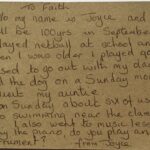 To Faith
lo my name is Joyce and
ill be 100yrs in September
played netball at school an
en I was older I played
used to go out with my da
d the dog on a Sunday mo
visit my auntie
on Sunday about six of us
o swimming near the clan
I also went to music less
y the piano, do you play an
nstrument? from Joyce